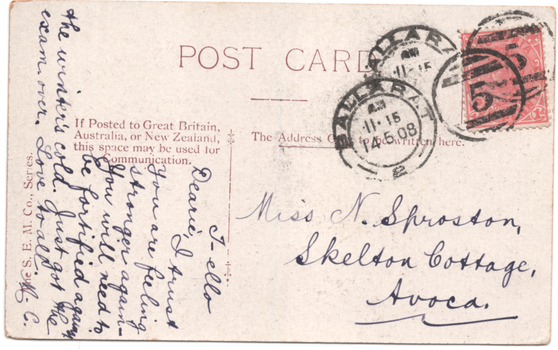 POST CARD
If Posted to Great Britain,
Australia, or New Zealand,
this space may be used for
Communication.
The Address to be written here.
S. E. M. Co., Series.
BALLARAT
11·15
BALLARAT
11·15
14·5·08
2
5
5
I-ello
Dearie, I trust
you are feeling
stronger again-
You will need to
be fortified again
the winter's cold. Just got the
exam. over. Love to all.
C.
Miss N. Sproston,
Skelton Cottage,
Avoca.